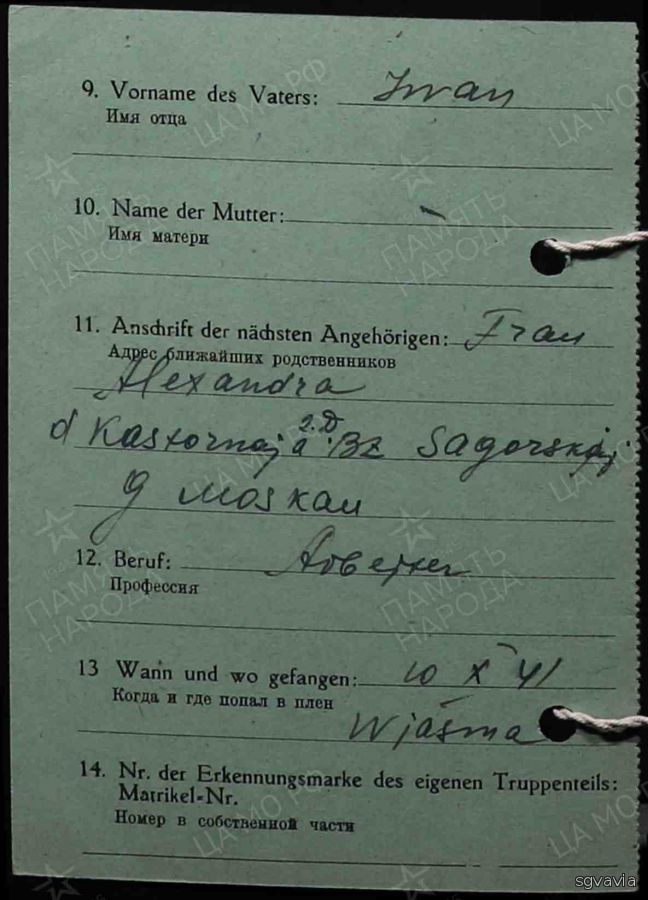 9. Vorname des Vaters: Iwan
Имя отца
10. Name der Mutter: —
Имя матери
11. Anschrift der nächsten Angehörigen: Frau
Адрес ближайших родственников
Alexandra
d Kastornaja Bz Sagorskij
g Moskau
12. Beruf: Arbeiter
Профессия
13 Wann und wo gefangen: 10 X 41
Когда и где попал в плен
Wjäsma
14. Nr. der Erkennungsmarke des eigenen Truppenteils:
Matrikel-Nr.
Номер в собственной части
ЦА МО РФ
ПАМЯТЬ НАРОДА
sgvavia